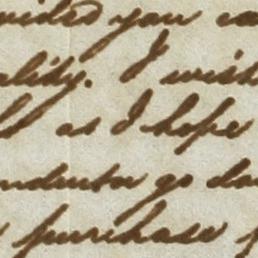 vided you ca
ality. I wish
l as I hope
nductor go da
purchase